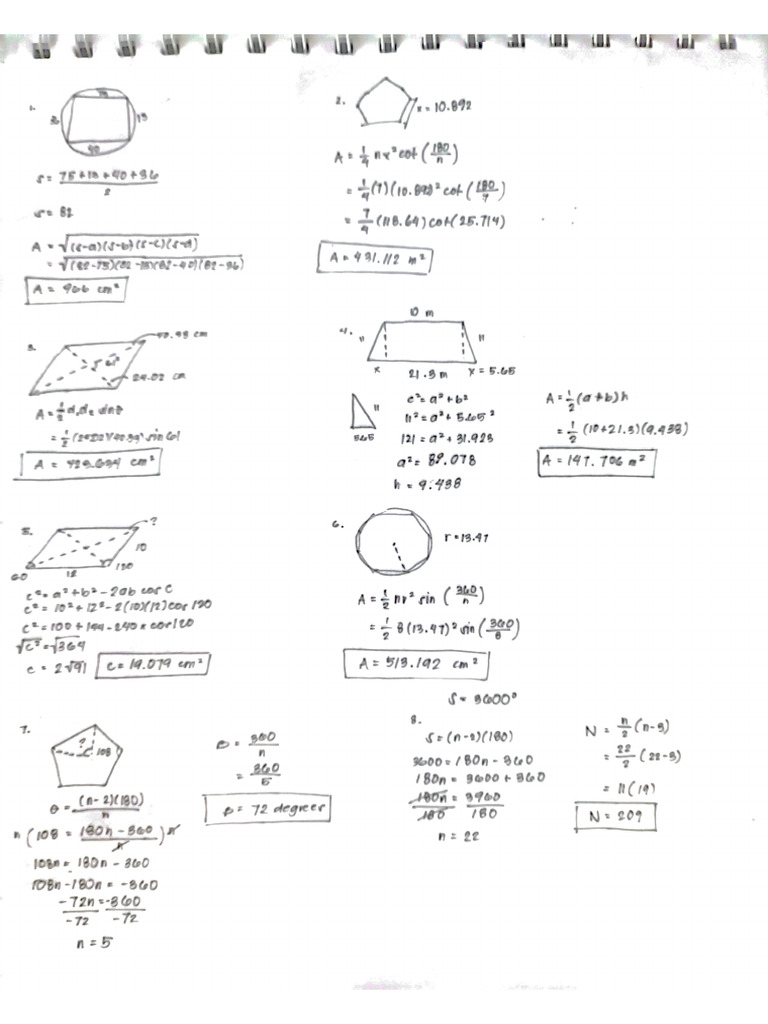 1.
40
s = 75 + 13 + 40 + 36
2
s = 82
A = √(s-a)(s-b)(s-c)(s-d)
= √(82-75)(82-13)(82-40)(82-36)
A = 966 cm²
2.
x = 10.892
A = 1/4 nx² cot (180/n)
= 1/4 (7)(10.892)² cot (180/7)
= 7/4 (118.64) cot (25.714)
A = 431.112 m²
3.
24.02 cm
A = 1/2 d₁d₂ sinθ
4.
10 m
11
11
x
21.3 m
x = 5.65
11
5.65
c² = a² + b²
11² = a² + 5.65²
121 = a² + 31.923
a² = 89.078
h = 9.438
A = 1/2 (a+b)h
= 1/2 (10+21.3)(9.438)
A = 147.706 m²
5.
?
10
60
12
120
c² = a² + b² - 2ab cos C
c² = 10² + 12² - 2(10)(12) cos 120
c² = 100 + 144 - 240 x cos 120
√c² = √364
c = 2√91
c = 19.079 cm²
6.
r = 13.47
A = 1/2 nr² sin (360/n)
= 1/2 8(13.47)² sin (360/8)
A = 513.192 cm²
7.
?
108
θ = (n-2)(180)/n
n (108 = 180n - 360/n) n
108n = 180n - 360
108n - 180n = -360
-72n = -360
-72 -72
n = 5
β = 360/n
= 360/5
β = 72 degrees
S = 3600°
8.
S = (n-2)(180)
3600 = 180n - 360
180n = 3600 + 360
180n = 3960
180 180
n = 22
N = n/2 (n-3)
= 22/2 (22-3)
= 11(19)
N = 209